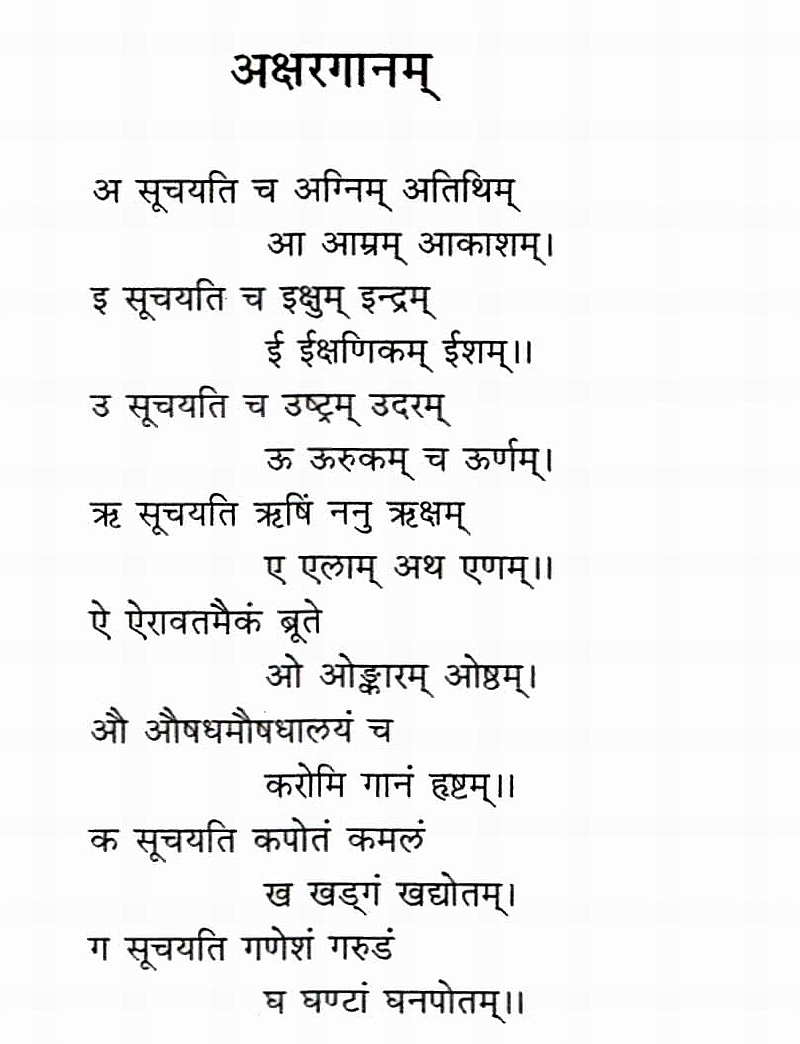 अक्षरगानम्
अ सूचयति च अग्निम् अतिथिम्
आ आम्रम् आकाशम्।
इ सूचयति च इक्षुम् इन्द्रम्
ई ईक्षणिकम् ईशम्।।
उ सूचयति च उष्ट्रम् उदरम्
ऊ ऊरुकम् च ऊर्णम्।
ऋ सूचयति ऋषिं ननु ऋक्षम्
ए एलाम् अथ एणम्।।
ऐ ऐरावतमैकं ब्रूते
ओ ओङ्कारम् ओष्ठम्।
औ औषधमौषधालयं च
करोमि गानं हृष्टम्।।
क सूचयति कपोतं कमलं
ख खड्गं खद्योतम्।
ग सूचयति गणेशं गरुडं
घ घण्टां घनपोतम्।।